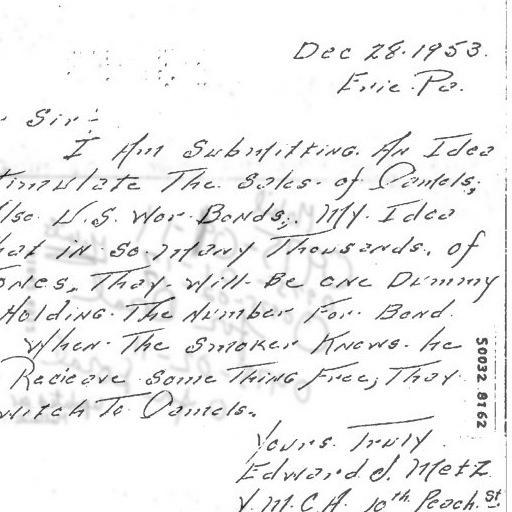 Dec 28. 1953.
Erie. Pa.
Sir:-
I Am Submitting. An Idea
timulate The Sales. of Camels,
lso U.S. War. Bonds,. My. Idea
hat in so. Many Thousands. of
ones, Thay. will. Be one Dummy
Holding. The Number For. Bond.
When. The smoker Knows. he
Racieave Some Thing Free, Thay.
witch To Camels.
Yours. Truly.
Edward J. Metz
Y. M. C. A. 10th Peach. St.
50032 8162